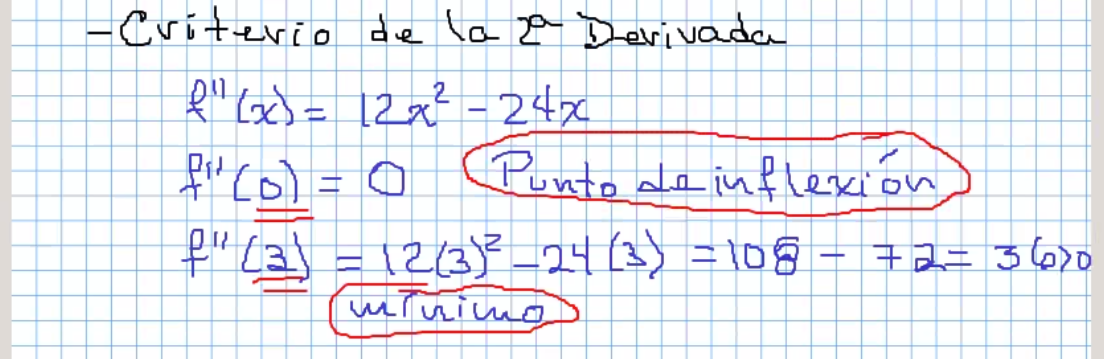 - Criterio de la 2ª Derivada
f''(x) = 12x² - 24x
f''(0) = 0 Punto de inflexión
f''(3) = 12(3)² - 24(3) = 108 - 72 = 36>0
mínimo